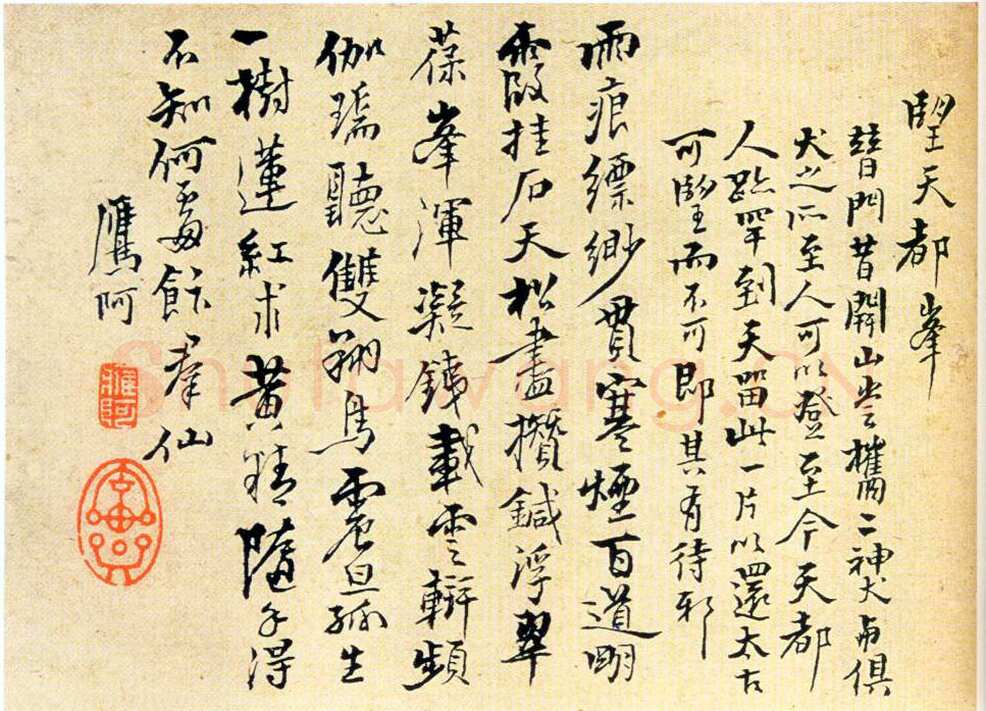 望天都峯
普門昔開山嘗攜二神犬與俱
犬之所至人可以登至今天都
人跡罕到天留此一片以還太古
可望而不可即其有待邪
雨痕縹緲貫寒煙百道明
霞挂石天松盡攢鍼浮翠
葆峯渾凝鐵載雲輧頻
伽瑞聽雙翔鳥曇孤生
一樹蓮紅求黃精隨手得
不知何處飯羣仙
鷹阿
鷹阿
Shufawang.CN